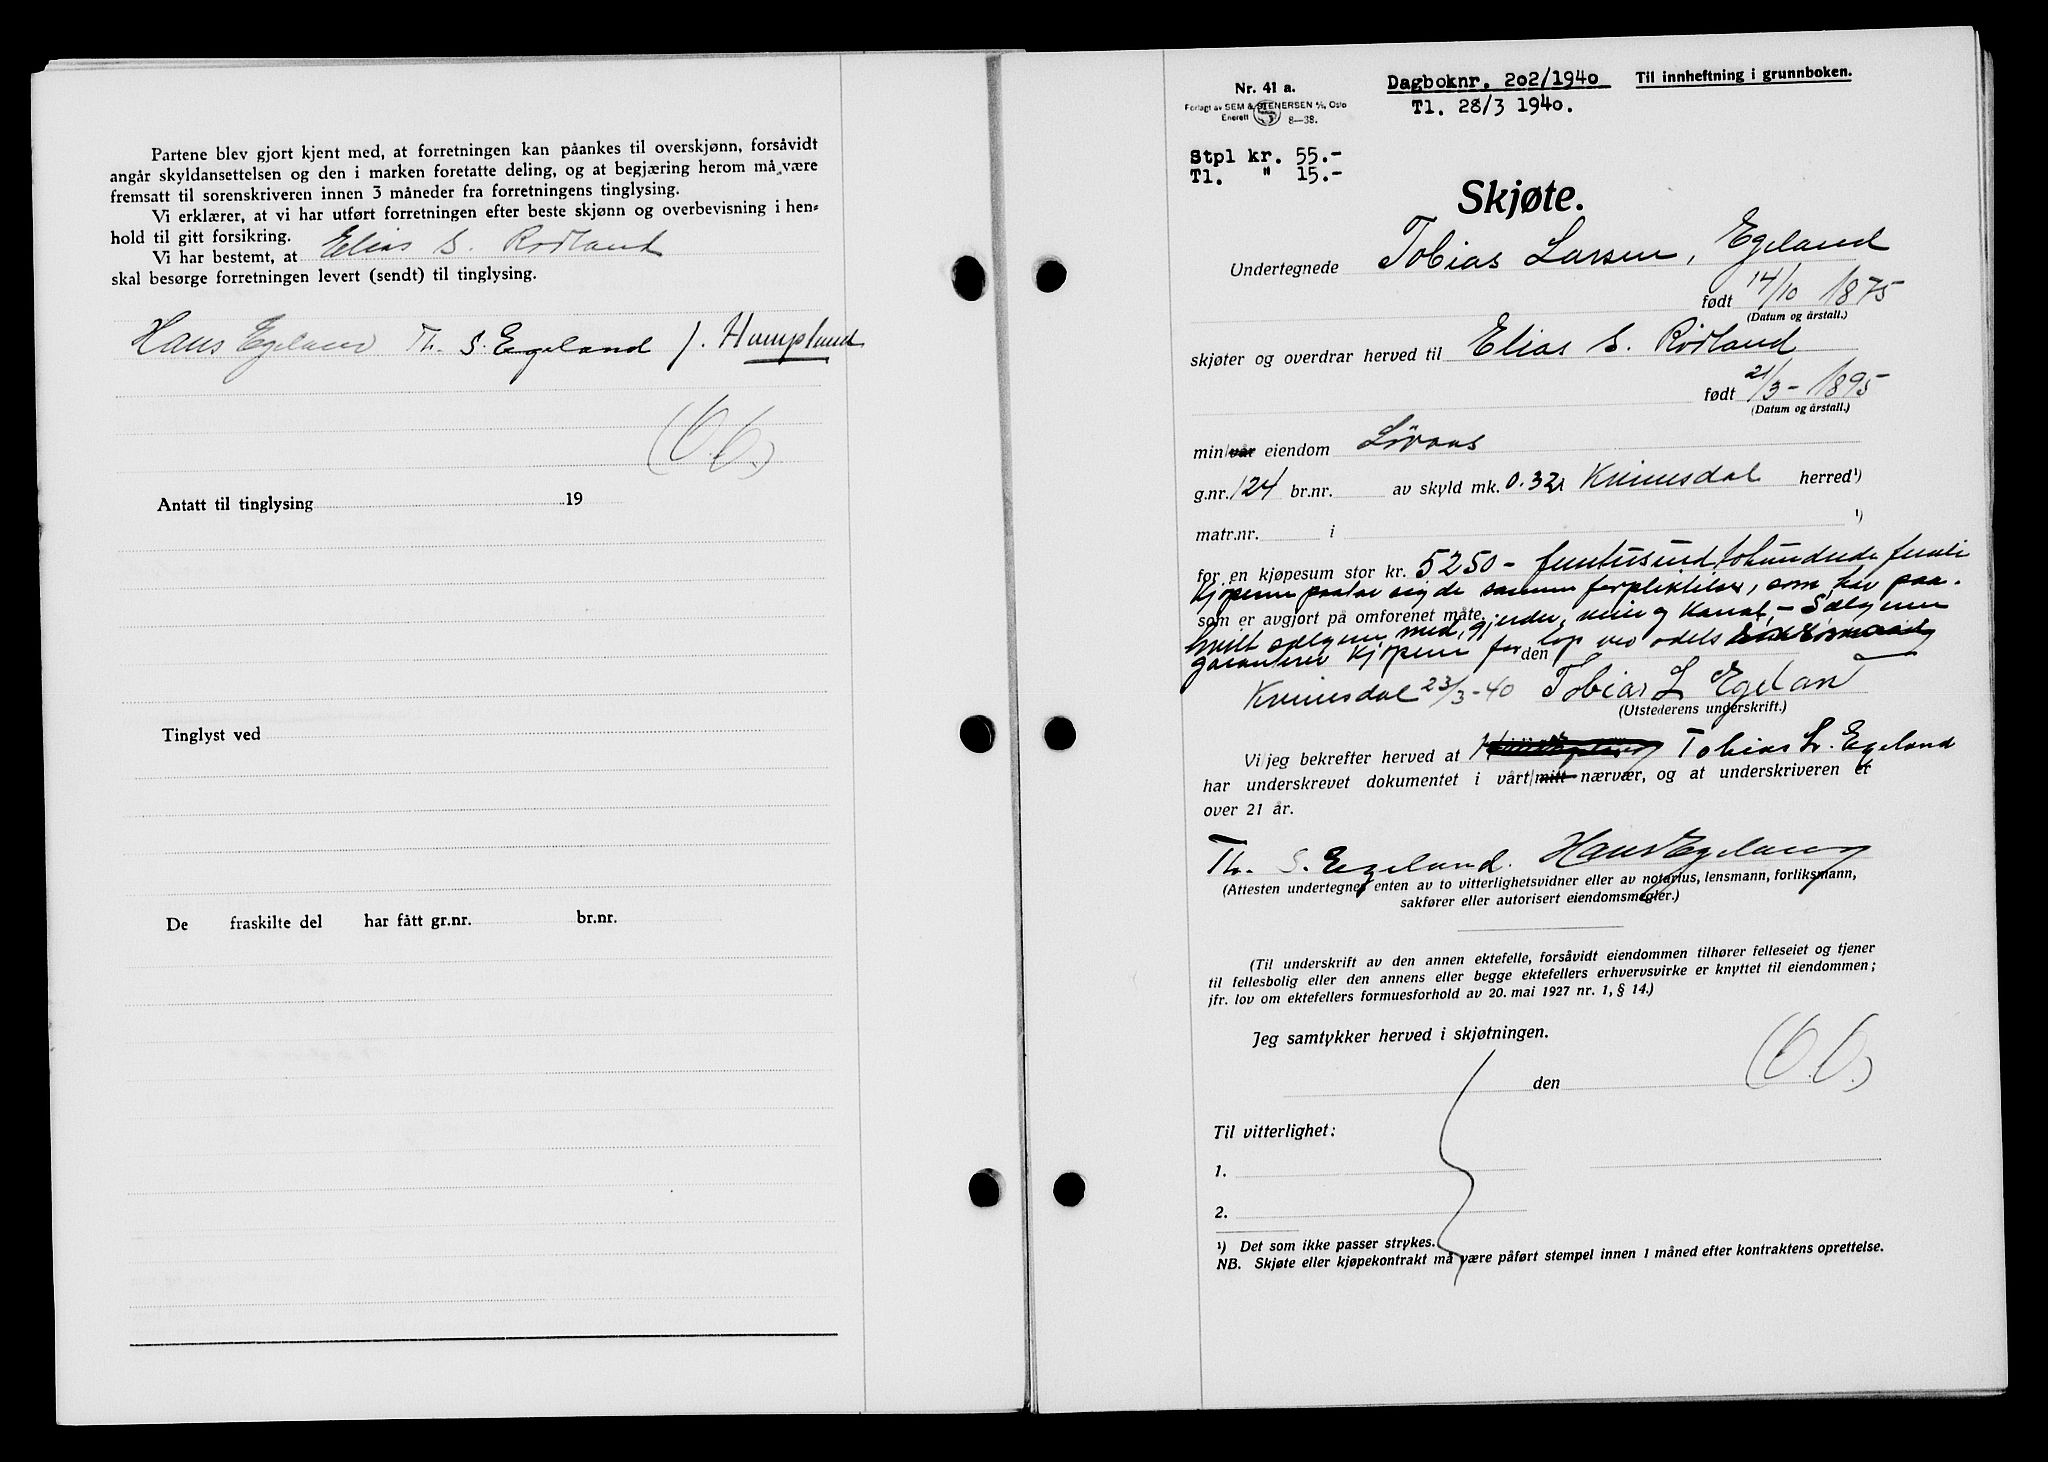 Partene blev gjort kjent med, at forretningen kan påankes til overskjønn, forsåvidt
angår skyldansettelsen og den i marken foretatte deling, og at begjæring herom må være
fremsatt til sorenskriveren innen 3 måneder fra forretningens tinglysing.
Vi erklærer, at vi har utført forretningen efter beste skjønn og overbevisning i hen-
hold til gitt forsikring.
Vi har bestemt, at Elias S. Rødland
skal besørge forretningen levert (sendt) til tinglysing.
Hans Egeland Th. S. Egeland J. Humpland
Antatt til tinglysing 19
Tinglyst ved
De fraskilte del har fått gr.nr. br.nr.
Nr. 41 a.
Forlagt av SEM & STENERSEN A/S, Oslo
Enerett 8—38.
Dagboknr. 202/1940 Til innheftning i grunnboken.
Tl. 28/3 1940.
Stpl kr. 55.-
Tl. " 15.-
Skjøte.
Undertegnede Tobias Larsen, Egeland
født 14/10 1875
(Datum og årstall.)
skjøter og overdrar herved til Elias S. Rødland
født 21/3 - 1895
(Datum og årstall.)
min/vår eiendom Løvaas
g.nr. 124 br.nr. av skyld mk. 0.32 i Kvinesdal herred¹)
matr.nr. i ¹)
for en kjøpesum stor kr. 5250 - femtusind tohundrede femti
Kjøperen paatar sig de samme forpliktelser, som har paa-
som er avgjort på omforenet måte.
hvilt sælgeren med, gjerder, veie og kanal, - Sælgeren
garanterer kjøperen for løp ved odels
den
Kvinesdal 23/3-40 Tobias L Egeland
(Utstederens underskrift.)
Vi/jeg bekrefter herved at Tobias L. Egeland
har underskrevet dokumentet i vårt/mitt nærvær, og at underskriveren er
over 21 år.
Th. S. Egeland. Hans Egeland
(Attesten undertegnes enten av to vitterlighetsvidner eller av notarius, lensmann, forliksmann,
sakfører eller autorisert eiendomsmegler.)
(Til underskrift av den annen ektefelle, forsåvidt eiendommen tilhører felleseiet og tjener
til fellesbolig eller den annens eller begge ektefellers erhvervsvirke er knyttet til eiendommen;
jfr. lov om ektefellers formuesforhold av 20. mai 1927 nr. 1, § 14.)
Jeg samtykker herved i skjøtningen.
den
Til vitterlighet:
1.
2.
¹) Det som ikke passer strykes.
NB. Skjøte eller kjøpekontrakt må være påført stempel innen 1 måned efter kontraktens oprettelse.